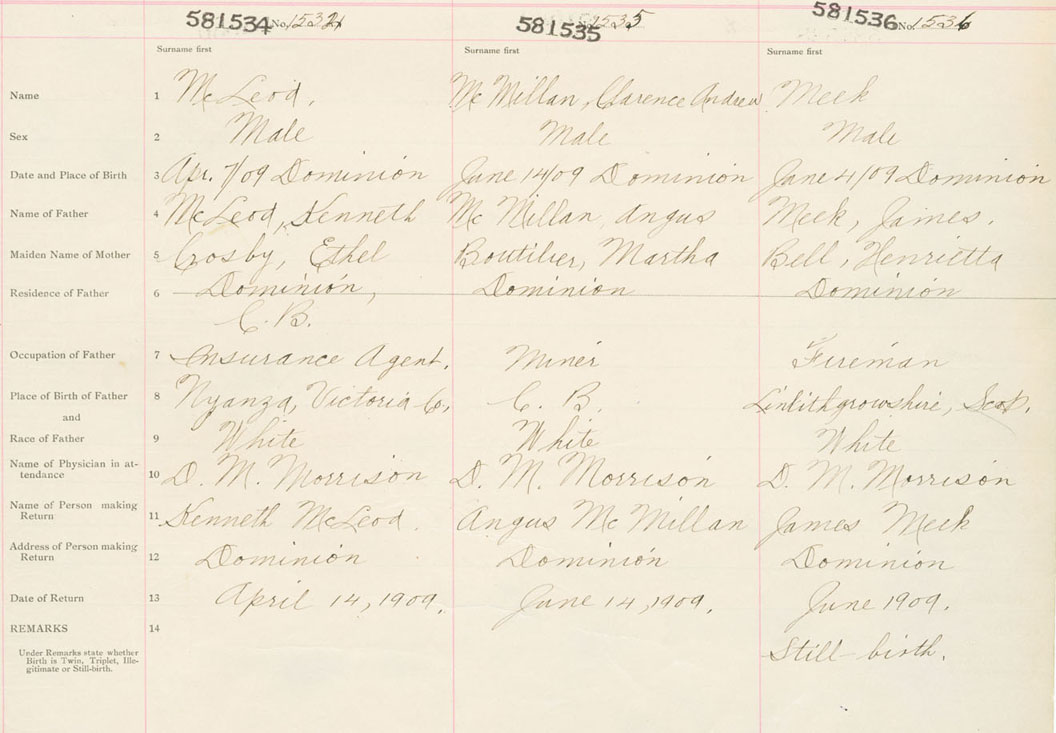 581534 No. 1534 581535 1535 581536 No. 1536
Surname first Surname first Surname first
Name 1 McLeod, McMillan, Clarence Andrew Meek
Sex 2 Male Male Male
Date and Place of Birth 3 Apr. 7/09 Dominion June 14/09 Dominion June 4/09 Dominion
Name of Father 4 McLeod, Kenneth McMillan, Angus Meek, James.
Maiden Name of Mother 5 Crosby, Ethel Boutilier, Martha Bell, Henrietta
Residence of Father 6 Dominion, Dominion Dominion
C. B.
Occupation of Father 7 Insurance Agent. Miner Fireman
Place of Birth of Father 8 Nyanza, Victoria Co. C. B. Linlithgrowshire, Scot.
and
Race of Father 9 White White White
Name of Physician in at-
tendance 10 D. M. Morrison D. M. Morrison D. M. Morrison
Name of Person making
Return 11 Kenneth McLeod. Angus McMillan James Meek
Address of Person making
Return 12 Dominion Dominion Dominion
Date of Return 13 April 14, 1909. June 14, 1909. June 1909.
REMARKS 14
Under Remarks state whether
Birth is Twin, Triplet, Ille-
gitimate or Still-birth.
Still-birth.